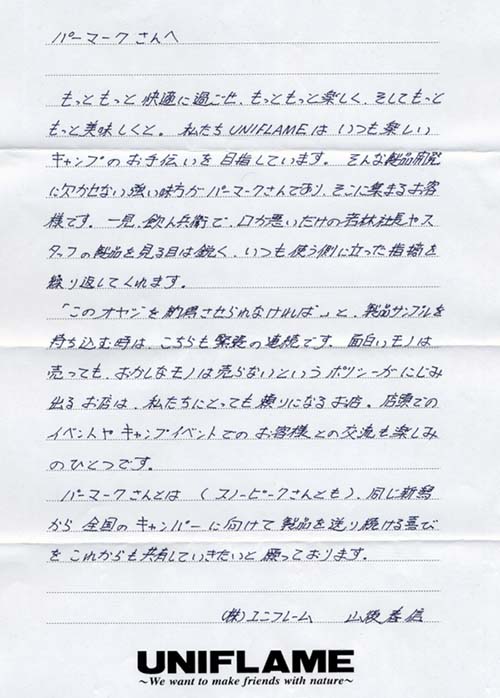 パーマークさんへ
もっともっと快適に過ごせ、もっともっと楽しく、そしてもっと
もっと美味しくと。私たちUNIFLAMEはいつも楽しい
キャンプのお手伝いを目指しています。そんな製品開発
に欠かせない強い味方がパーマークさんであり、そこに集まるお客
様です。一見、飲ん兵衛で、口が悪いだけの若林社長やス
タッフの製品を見る目は鋭く、いつも使う側に立った指摘を
繰り返してくれます。
「このオヤジを納得させられなければ」と、製品サンプルを
持ち込む時は、こちらも緊張の連続です。面白いモノは
売っても、おかしなモノは売らないというポリシーがにじみ
出るお店は、私たちにとっても頼りになるお店。店頭での
イベントやキャンプイベントでのお客様との交流も楽しみ
のひとつです。
パーマークさんとは（スノーピークさんとも）、同じ新潟
から全国のキャンパーに向けて製品を送り続ける喜び
をこれからも共有していきたいと願っております。
(株)ユニフレーム 山後春信
UNIFLAME
～We want to make friends with nature～